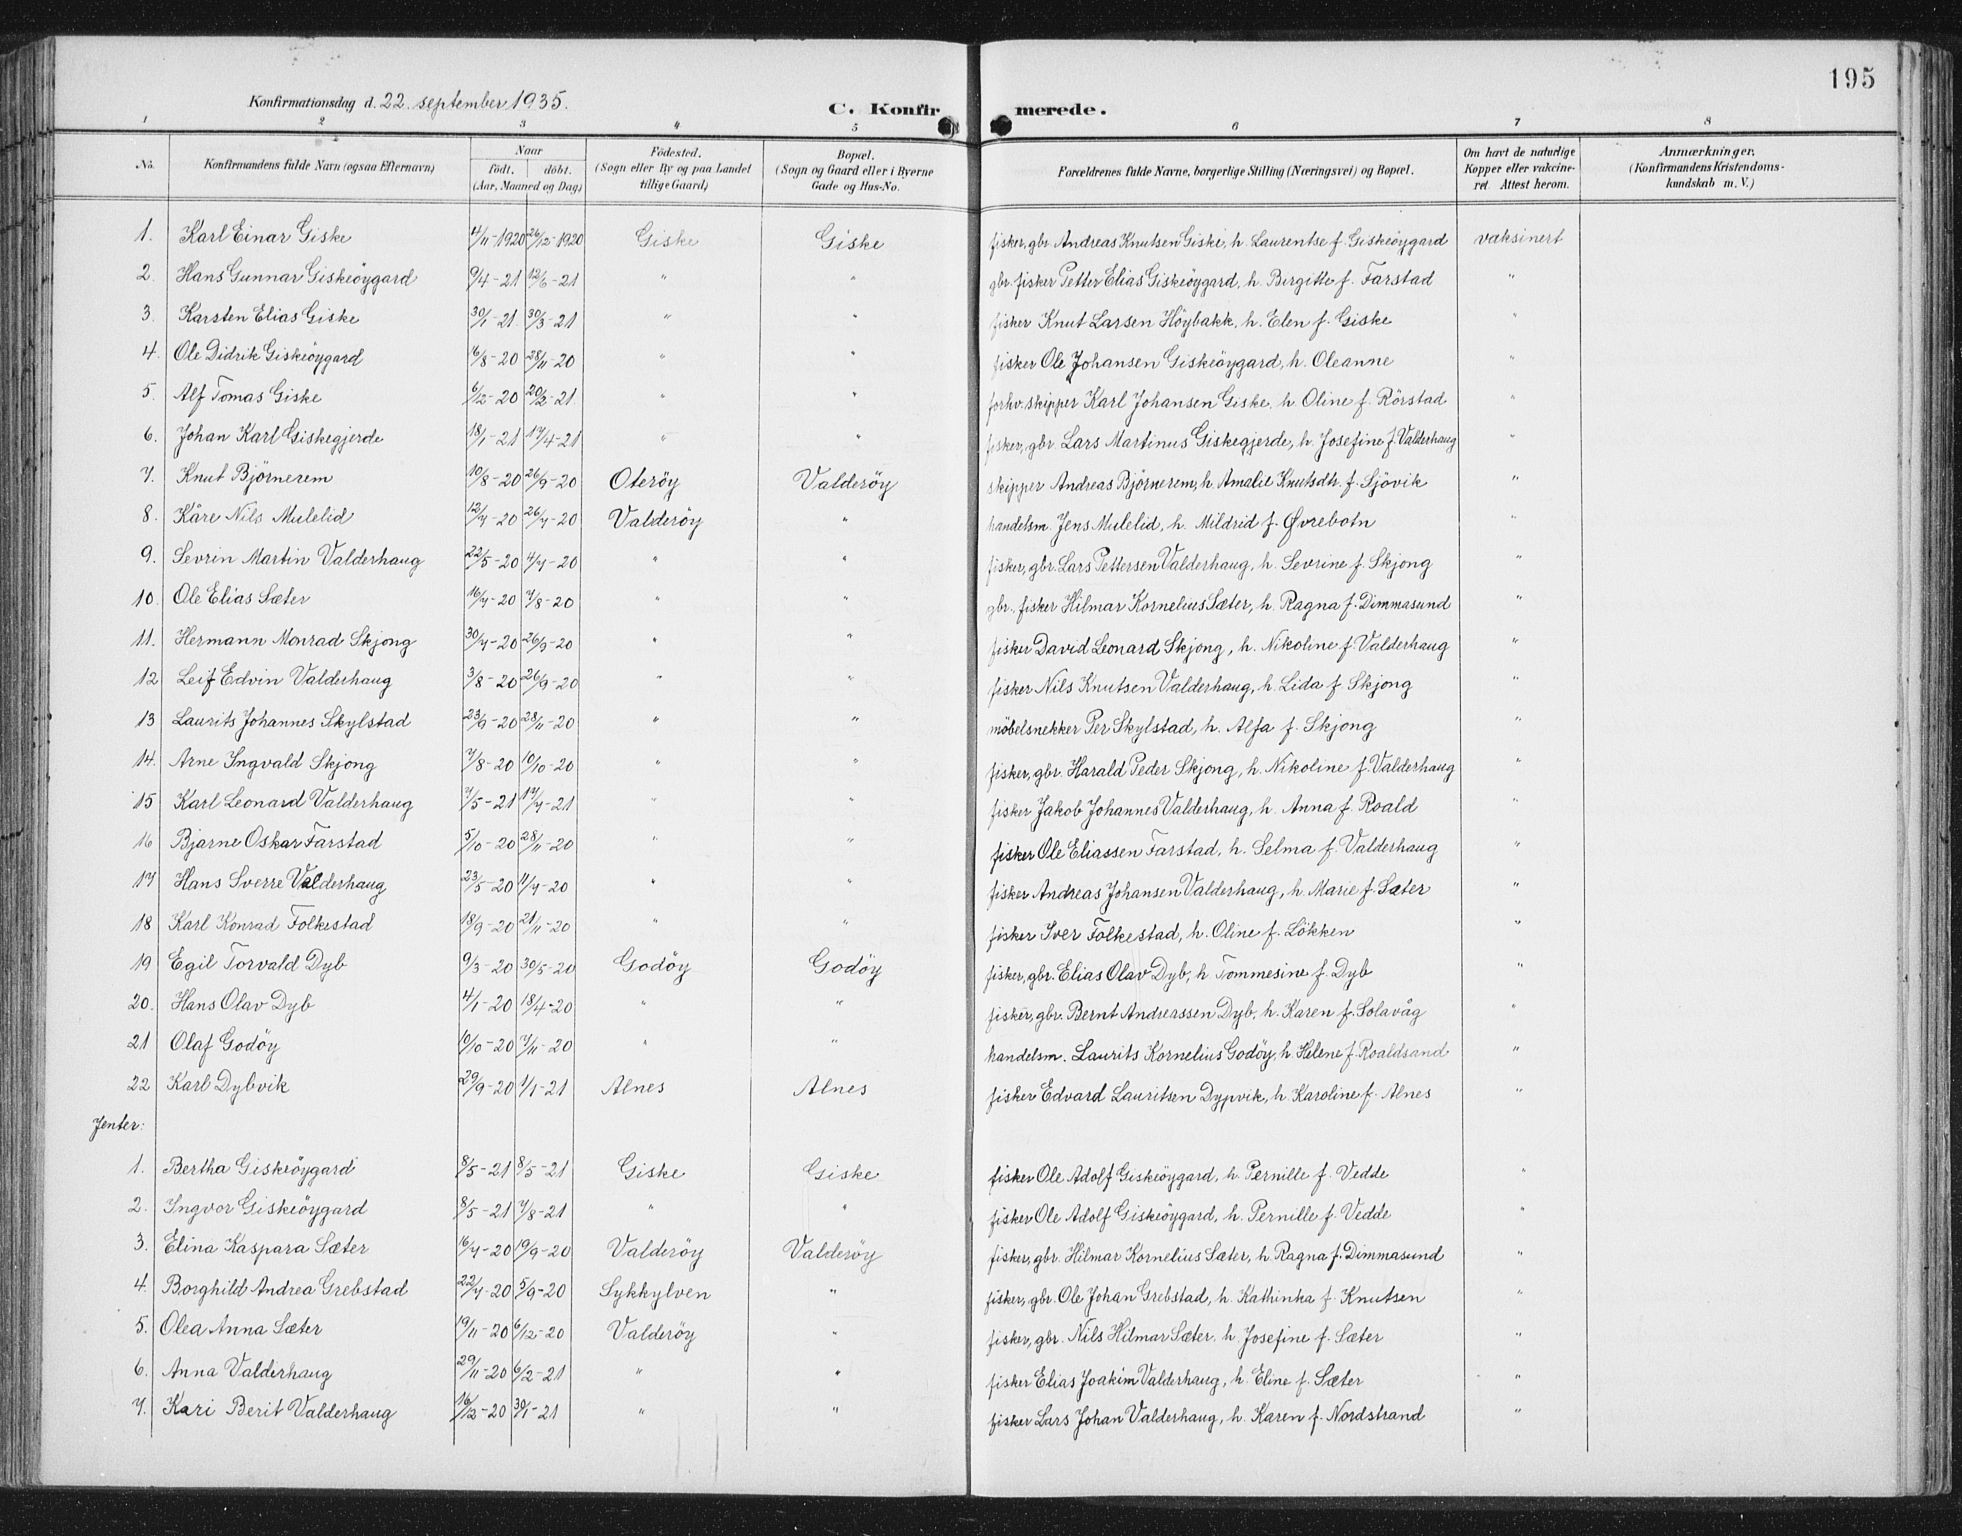 195
Konfirmationsdag d. 22. september 1935.
C. Konfirmerede.
1 2 3 4 5 6 7 8
No. Konfirmandens fulde Navn (ogsaa Efternavn) Naar født. døbt. (Aar, Maaned og Dag) Fødested. (Sogn eller By og paa Landet tillige Gaard) Bopæl. (Sogn og Gaard eller i Byerne Gade og Hus-No. Forældrenes fulde Navne, borgerlige Stilling (Næringsvei) og Bopæl. Om havt de naturlige Kopper eller vakcineret. Attest herom. Anmærkninger. (Konfirmandens Kristendomskundskab m. V.)
1. Karl Einar Giske 4/11-1920 26/12-1920 Giske Giske fisker, gbr. Andreas Knutsen Giske, h. Laurentse f. Giskeöygard vaksinert
2. Hans Gunnar Giskeöygard 9/4-21 12/6-21 " " gbr. fisker Petter Elias Giskeöygard, h. Birgitte f. Farstad "
3. Karsten Elias Giske 30/1-21 30/3-21 " " fisker Knut Larsen Höybakk, h. Elen f. Giske "
4. Ole Didrik Giskeöygard 6/8-20 28/11-20 " " fisker Ole Johansen Giskeöygard, h. Oleanne "
5. Alf Tomas Giske 6/12-20 20/2-21 " " forhv. skipper Karl Johansen Giske, h. Oline f. Rörstad "
6. Johan Karl Giskegjerde 18/1-21 17/4-21 " " fisker, gbr. Lars Martinus Giskegjerde, h. Josefine f. Valderhaug "
7. Knut Björnerem 10/8-20 26/9-20 Oteröy Valderöy skipper Andreas Björnerem, h. Amalie Knutsdtr. f. Sjövik "
8. Kåre Nils Mulelid 12/7-20 26/7-20 Valderöy " handelsm. Jens Mulelid, h. Mildrid f. Øvrebotn "
9. Sevrin Martin Valderhaug 22/5-20 4/7-20 " " fisker, gbr. Lars Pettersen Valderhaug, h. Sevrine f. Skjong "
10. Ole Elias Sæter 16/7-20 7/8-20 " " gbr. fisker Hilmar Kornelius Sæter, h. Ragna f. Dimmasund "
11. Hermann Monrad Skjong 30/7-20 26/9-20 " " fisker David Leonard Skjong, h. Nikoline f. Valderhaug "
12 Leif Edvin Valderhaug 3/8-20 26/9-20 " " fisker Nils Knutsen Valderhaug, h. Lida f. Skjong "
13 Laurits Johannes Skylstad 23/9-20 28/11-20 " " möbelsnekker Per Skylstad, h. Alfa f. Skjong "
14. Arne Ingvald Skjong 7/8-20 10/10-20 " " fisker, gbr. Harald Peder Skjong, h. Nikoline f. Valderhaug "
15 Karl Leonard Valderhaug 7/5-21 17/7-21 " " fisker Jakob Johannes Valderhaug, h. Anna f. Roald "
16 Bjarne Oskar Farstad 5/10-20 28/11-20 " " fisker Ole Eliassen Farstad, h. Selma f. Valderhaug "
17 Hans Sverre Valderhaug 23/5-20 11/7-20 " " fisker Andreas Johansen Valderhaug, h. Marie f. Sæter "
18 Karl Konrad Folkestad 18/9-20 21/11-20 " " fisker Iver Folkestad, h. Oline f. Lökken "
19 Egil Torvald Dyb 9/3-20 30/5-20 Godöy Godöy fisker, gbr. Elias Olav Dyb, h Tommesine f. Dyb "
20. Hans Olav Dyb 4/1-20 18/4-20 " " fisker, gbr. Bernt Andreassen Dyb, h. Karen f. Solavåg "
21 Olaf Godöy 10/10-20 7/11-20 " " handelsm. Laurits Kornelius Godöy, h. Helene f. Roaldsand "
22 Karl Dybvik 29/9-20 1/1-21 Alnes Alnes fisker Edvard Lauritsen Dypvik, h. Karoline f. Alnes "
Jenter:
1. Bertha Giskeöygard 8/5-21 8/5-21 Giske Giske fisker Ole Adolf Giskeöygard, h. Pernille f. Vedde "
2. Ingvor Giskeöygard 8/5-21 7/8-21 " " fisker Ole Adolf Giskeöygard, h. Pernille f. Vedde "
3. Elina Kaspara Sæter 16/7-20 19/9-20 Valderöy Valderöy fisker, gbr. Hilmar Kornelius Sæter, h. Ragna f. Dimmasund "
4. Borghild Andrea Grebstad 22/7-20 5/9-20 Sykkylven " fisker, gbr. Ole Johan Grebstad, h. Kathinka f. Knutsen "
5. Olea Anna Sæter 19/11-20 6/12-20 Valderöy " fisker, gbr. Nils Hilmar Sæter, h. Josefine f. Sæter "
6. Anna Valderhaug 29/11-20 6/2-21 " " fisker Elias Joakim Valderhaug, h. Eline f. Sæter "
7. Kari Berit Valderhaug 16/12-20 30/1-21 " " fisker Lars Johan Valderhaug, h. Karen f. Nordstrand "